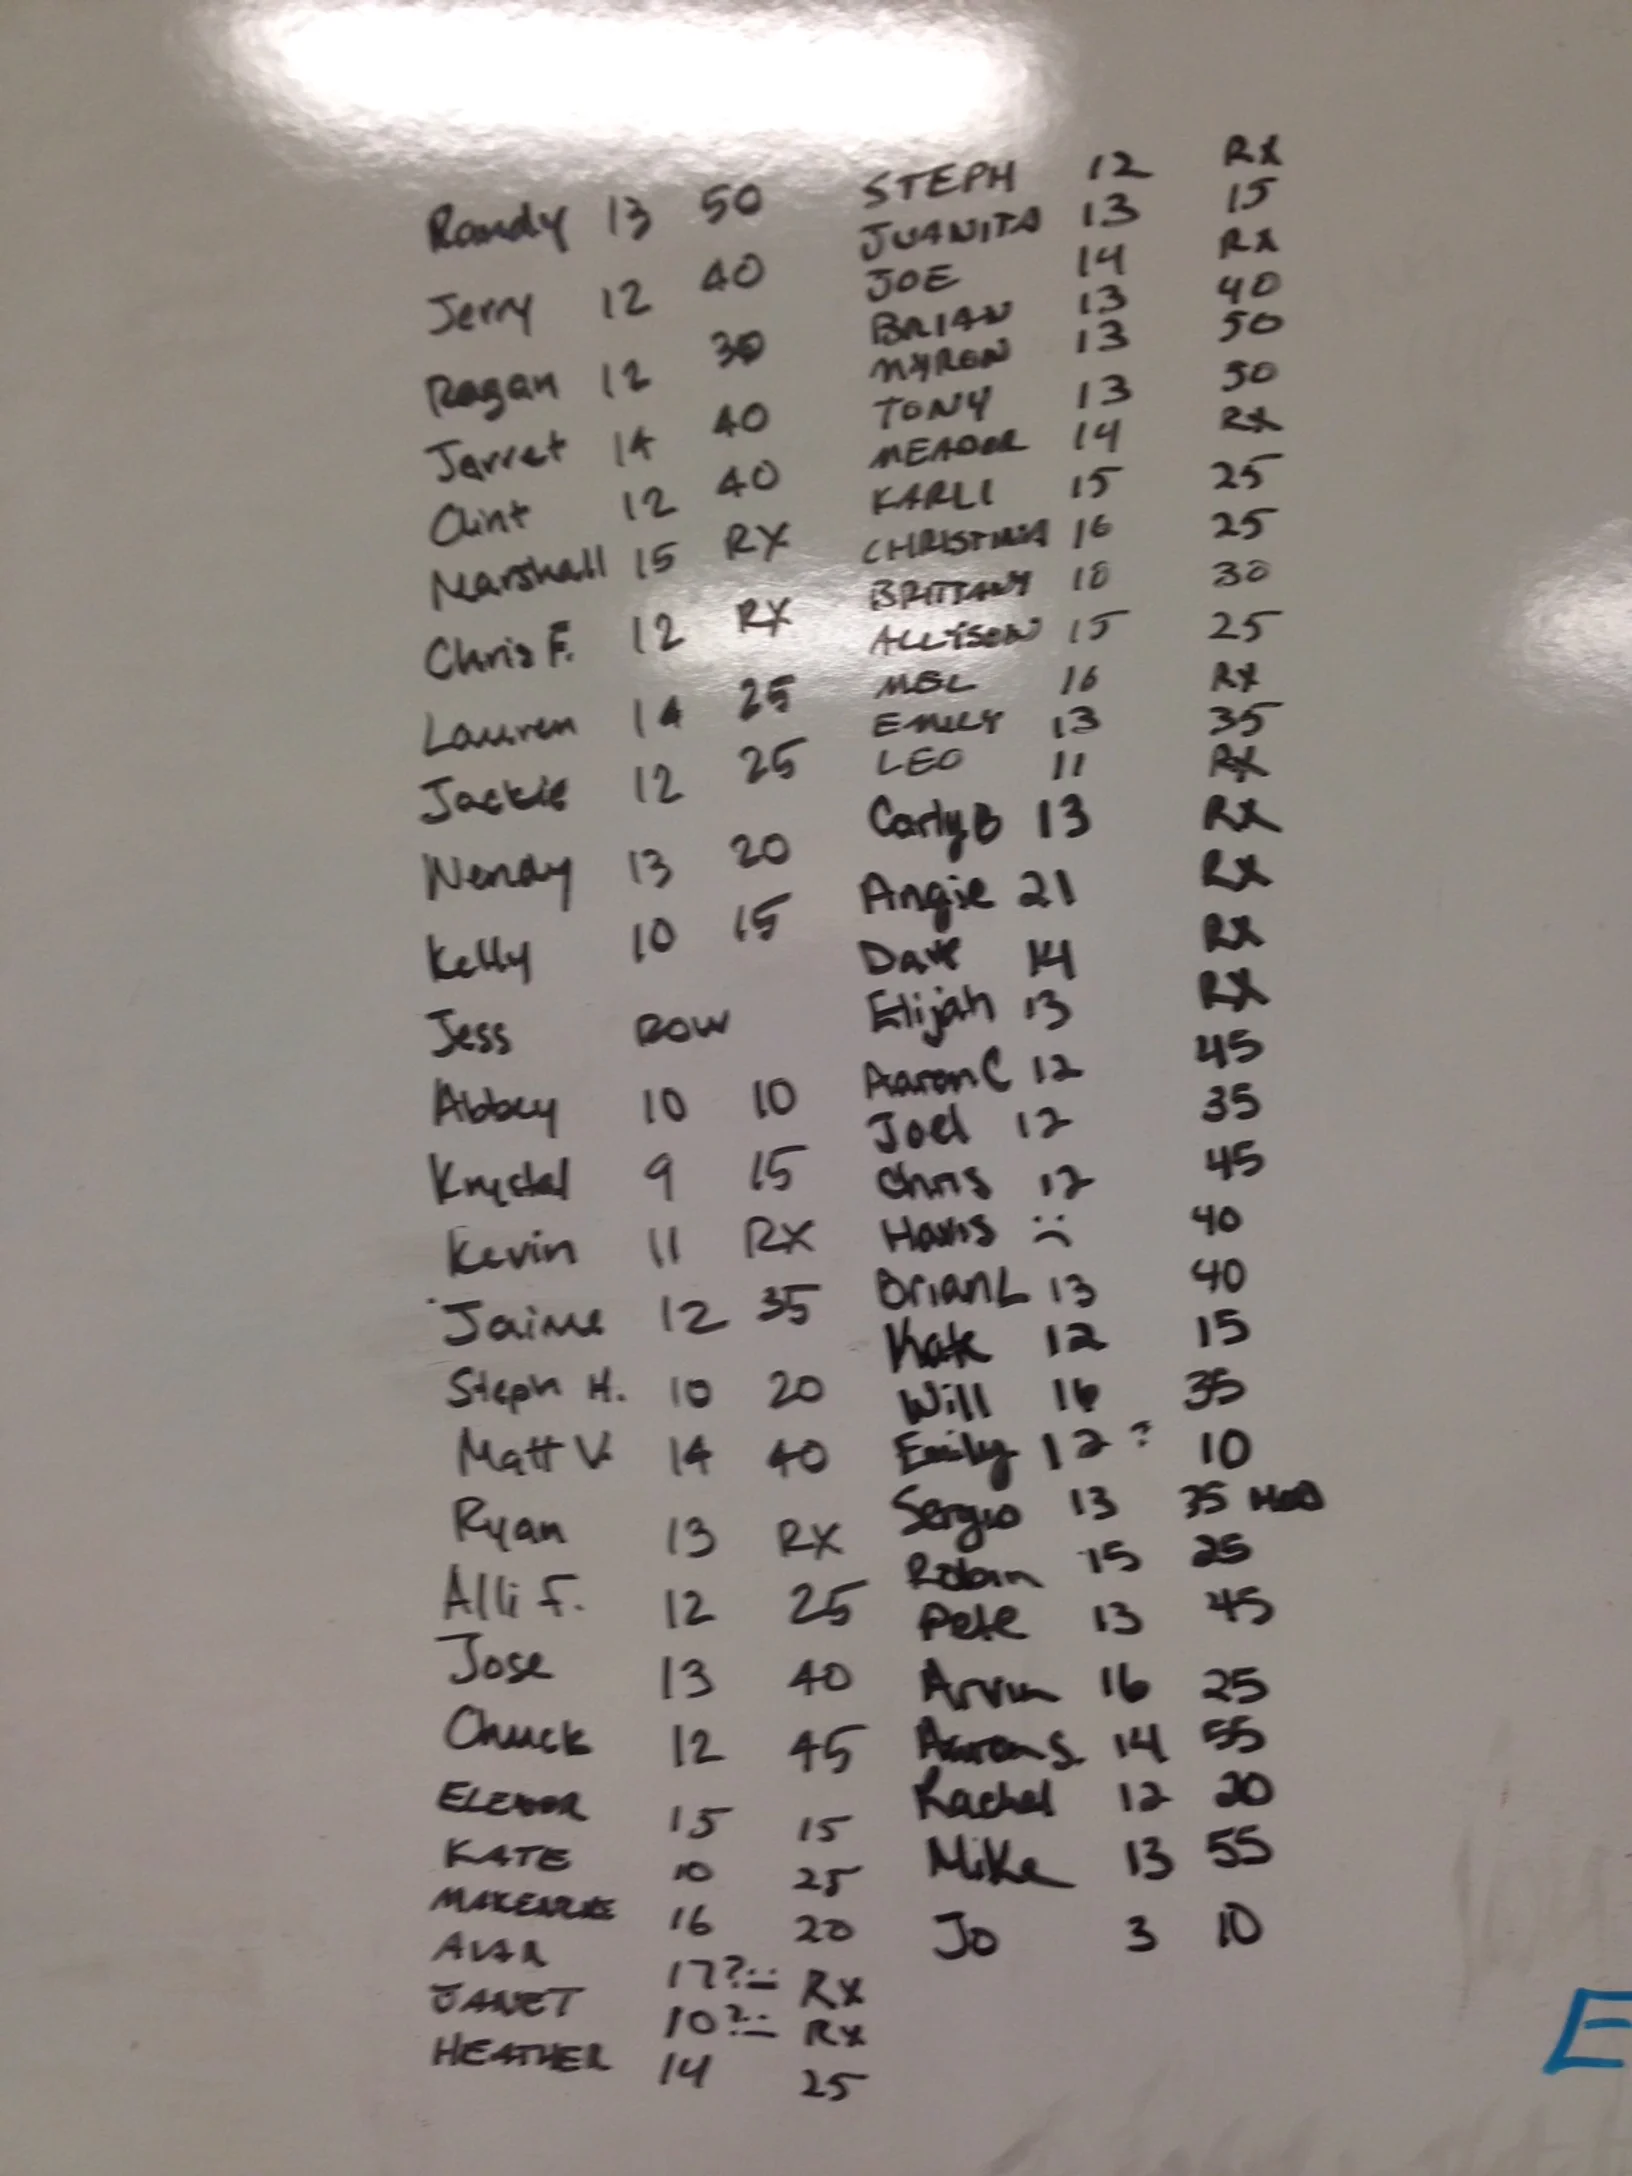 Randy 13 50
Jerry 12 40
Ragan 12 30
Jarret 14 40
Clint 12 40
Marshall 15 RX
Chris F. 12 RX
Lauren 14 25
Jackie 12 25
Wendy 13 20
Kelly 10 15
Jess ROW
Abbey 10 10
Krystal 9 15
Kevin 11 RX
Jaime 12 35
Steph H. 10 20
Matt V. 14 40
Ryan 13 RX
Alli F. 12 25
Jose 13 40
Chuck 12 45
ELEANOR 15 15
KATE 10 25
16 20
17? RX
JANET 10? RX
HEATHER 14 25
STEPH 12 RX
JUANITA 13 15
JOE 14 RX
BRIAN 13 40
MYRON 13 50
TONY 13 50
MEADOR 14 RX
KARLI 15 25
CHRISTINA 16 25
BRITTANY 18 30
ALLYSON 15 25
MEL 16 RX
EMILY 13 35
LEO 11 RX
Carly B 13 RX
Angie 21 RX
Dave 14 RX
Elijah 13 RX
Aaron C 12 45
Joel 12 35
Chris 12 45
Harris :( 40
Brian L 13 40
Kate 12 15
Will 16 35
Emily 12? 10
Sergio 13 35 MOD
Robin 15 25
Pete 13 45
Arvin 16 25
Aaron S. 14 55
Rachel 12 20
Mike 13 55
Jo 3 10
E